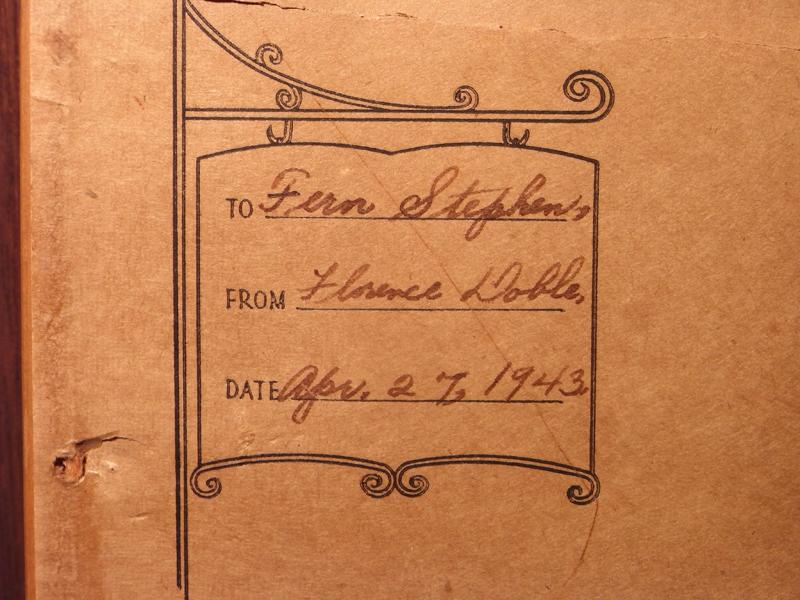 TO Fern Stephens,
FROM Florence Doble,
DATE Apr. 27, 1943.